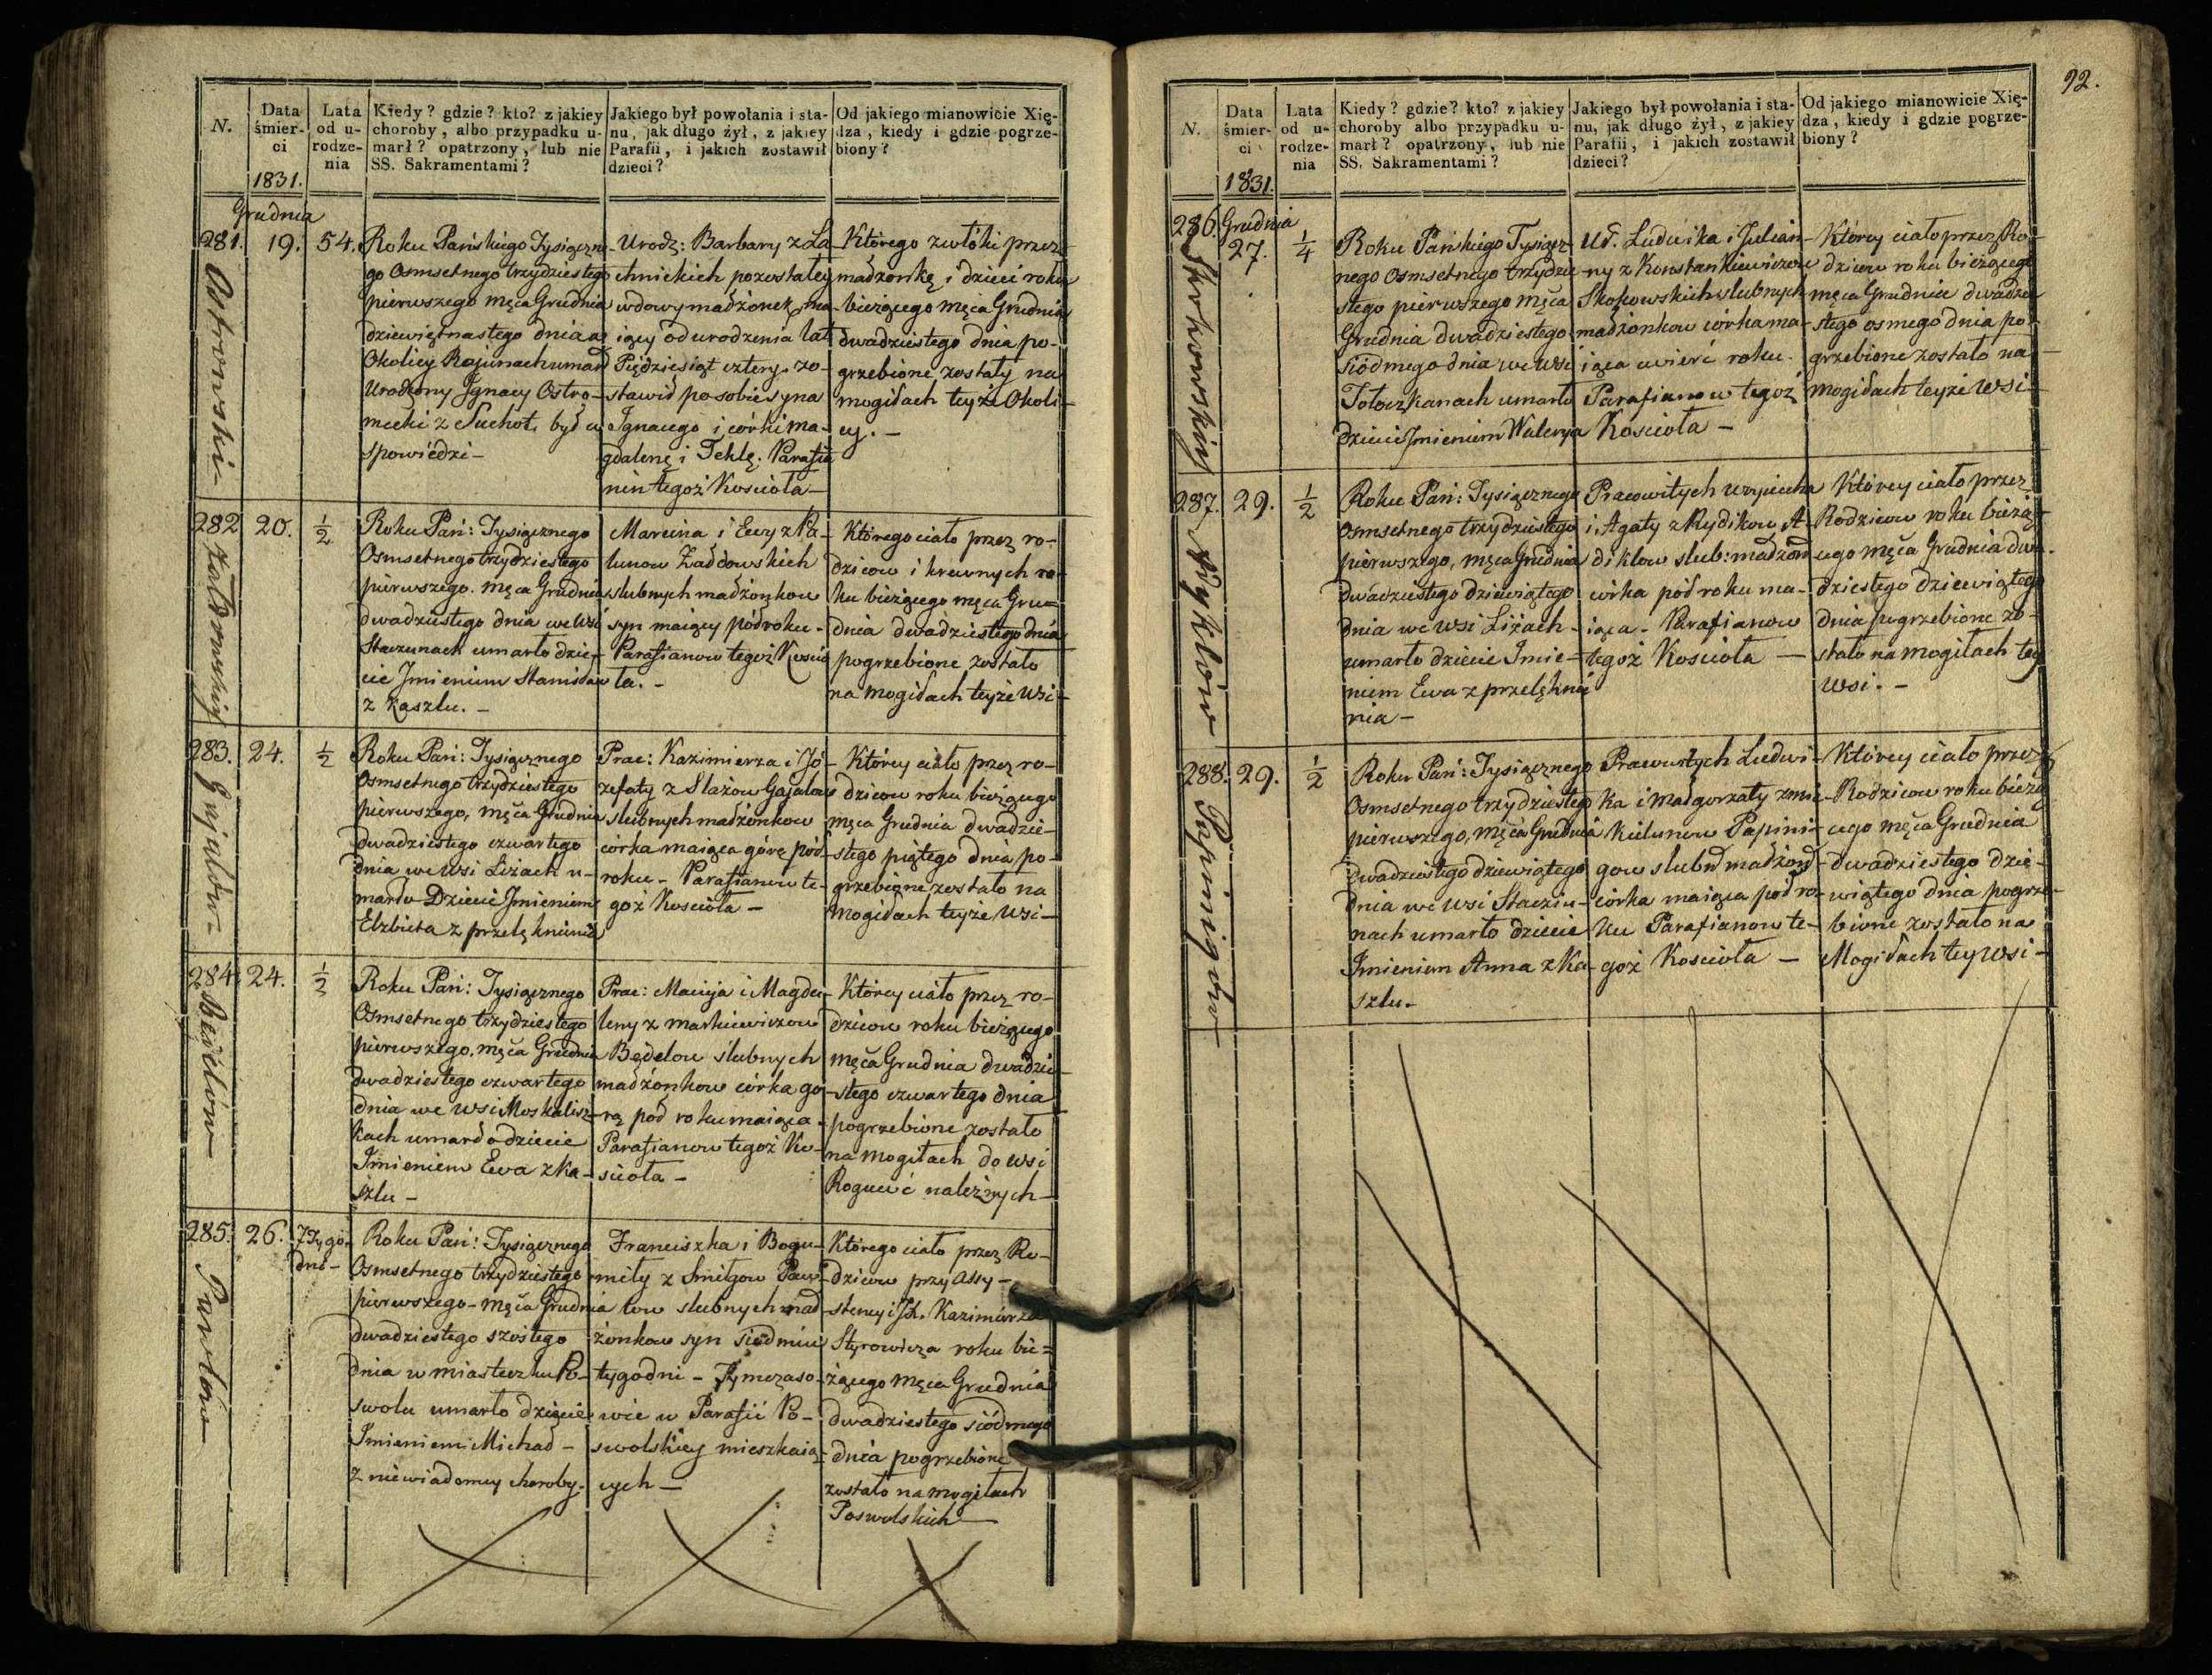 N.
Data śmierci 1831.
Lata od urodzenia
Kiedy? gdzie? kto? z jakiey
choroby, albo przypadku u-
marł? opatrzony, lub nie
SS. Sakramentami?
Jakiego był powołania i sta-
nu, jak długo żył, z jakiey
Parafii, i jakich zostawił
dzieci?
Od jakiego mianowicie Xię-
dza, kiedy i gdzie pogrze-
biony?
Grudnia
281. 19. 54.
Ostrowski
Roku Pańskiego Tysiączne-
go Osmsetnego trzydziestego
pierwszego męca Grudnia
dziewiętnastego dnia w
Okolicy Rajunach umarł
Urodzony Ignacy Ostro-
męcki z Suchot, był u
spowiedzi -
Urodz: Barbary z La-
chnickich pozostałey
wdowy małżonek, ma-
iący od urodzenia lat
Pięćdziesiąt cztery. zo-
stawił po sobie syna
Ignacego i córki Ma-
gdalenę i Teklę. Parafia-
nin tegoż Kościoła -
Którego zwłóki przez
małżonkę i dzieci roku
bieżącego męca Grudnia
dwadziestego dnia po-
grzebione zostały na
mogiłach teyże Okoli-
cy. -
282 20. ½
Roku Pań: Tysiącznego
Osmsetnego trzydziestego
pierwszego. męca Grudnia
dwadziestego dnia we wsi
Staczunach umarło dzie-
cie Imieniem Stanisław
z kaszlu. -
Marcina i Ewy z Pa-
lunow
ślubnych małżonkow
syn maiący półroku -
Parafianow tegoż Kościo-
ła. -
Którego ciało przez ro-
dzicow i krewnych ro-
ku bieżącego męca Gru=
dnia dwadziestego dnia
pogrzebione zostało
na mogiłach teyże wsi -
283. 24. ½
Gajalów -
Roku Pań: Tysiącznego
Osmsetnego trzydziestego
pierwszego, męca Grudnia
dwadziestego czwartego
dnia we wsi Liżach u-
marło Dziecie Imieniem
Elzbieta z przelęknienia
Prac: Kazimierza i Jó-
zefaty z Slażow Gajalow
ślubnych małżonkow
córka maiąca górę pół
roku - Parafianow te-
goż Kościoła -
Którey ciało przez ro-
dzicow roku bieżącego
męca Grudnia dwadzie-
stego piątego dnia po-
grzebione zostało na
mogiłach teyże wsi -
284. 24. ½
Roku Pań: Tysiącznego
Osmsetnego trzydziestego
pierwszego. męca Grudnia
dwadziestego czwartego
dnia we wsi Moskalisz-
kach umarło dziecie
Imieniem Ewa z ka-
szlu -
Prac: Macieja i Magda-
leny z Markiewiczow
Będelow ślubnych
małżonkow córka gó-
rą pół roku maiąca -
Parafianow tegoż Ko-
ścioła -
Którey ciało przez ro-
dzicow roku bieżącego
męca Grudnia dwadzie-
stego czwartego dnia
pogrzebione zostało
na mogiłach do wsi
Roguewć należnych -
285. 26. 7 Tygo-
dni -
Pawłów
Roku Pań: Tysiącznego
Osmsetnego trzydziestego
pierwszego - męca Grudnia
dwadziestego szóstego
dnia w miasteczku Po-
swolu umarło dziecie
Imieniem Michał -
z niewiadomey choroby.
Franciszka i Bogu-
miły z Smilgow Paw-
łow ślubnych mał-
żonkow syn siedmiu
tygodni - Tymczaso-
wie w Parafii Po-
swolskiey mieszkaią-
cych -
Którego ciało przez Ro-
dzicow przy Assy-
stencyi JX. Kazimierza
Styrowicza roku bie=
żącego męca Grudnia
dwadziestego siódmego
dnia pogrzebione
zostało na mogiłach
Poswolskich -
92.
N.
Data śmierci 1831.
Lata od urodzenia
Kiedy? gdzie? kto? z jakiey
choroby albo przypadku u-
marł? opatrzony, lub nie
SS. Sakramentami?
Jakiego był powołania i sta-
nu, jak długo żył, z jakiey
Parafii, i jakich zostawił
dzieci?
Od jakiego mianowicie Xię-
dza, kiedy i gdzie pogrze-
biony?
286. Grudnia
27. ¼
Roku Pańskiego Tysiącz-
nego Osmsetnego trzydzie-
stego pierwszego męca
Grudnia dwadziestego
siódmego dnia we wsi
Totoczkanach umarło
dziecie Imieniem Walerya
Ur. Ludwika i Julian-
ny z Konstankiewiczow
Skokowskich ślubnych
małżonkow córka ma-
iąca cwierć roku.
Parafianow tegoż
Kościoła -
Którey ciało przez Ro-
dzicow roku bieżącego
męca Grudnia dwadzie-
stego osmego dnia po-
grzebione zostało na
mogiłach teyże wsi -
287. 29. ½
Roku Pań: Tysiącznego
Osmsetnego trzydziestego
pierwszego, męca Grudnia
dwadziestego dziewiątego
dnia we wsi Liżach -
umarło dziecie Imie=
niem Ewa z przelęknie-
nia -
Pracowitych Woyciecha
i Agaty z Rydikow A-
diklow ślub: małżon
córka pół roku ma-
iąca - Parafianow
tegoż Kościoła -
Którey ciało przez
Rodzicow roku bieżą-
cego męca Grudnia dwa-
dziestego dziewiątego
dnia pogrzebione zo-
stało na mogiłach tey
wsi. -
288. 29. ½
Papinigów
Roku Pań: Tysiącznego
Osmsetnego trzydziestego
pierwszego, męca Grudnia
dwadziestego dziewiątego
dnia we wsi Staczu-
nach umarło dziecie
Imieniem Anna z ka-
szlu -
Pracowitych Ludwi-
ka i Małgorzaty z Mic-
kielunow Papini-
gow ślubn małżon
córka maiąca pół ro-
ku Parafianow te-
goż Kościoła -
Którey ciało przez
Rodzicow roku bieżą
cego męca Grudnia
dwadziestego dzie-
wiątego dnia pogrze-
bione zostało na
Mogiłach tey wsi -